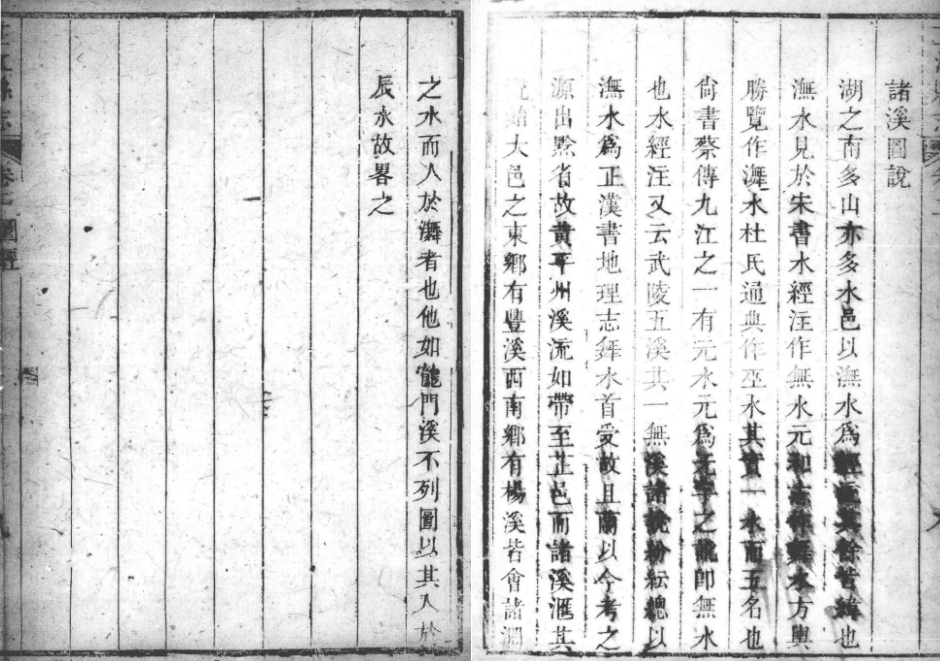 諸溪圖說
湖之南多山亦多水邑以潕水爲經流其餘皆緯也
潕水見於宋書水經注作無水元和志作舞水方輿
勝覽作㵲水杜氏通典作巫水其實一水而五名也
尙書蔡傳九江之一有元水元爲无字之訛卽無水
也水經注又云武陵五溪其一無溪諸說紛紜總以
潕水爲正漢書地理志舞水首受故且蘭以今考之
源出黔省故黃平州溪流如帶至芷邑而諸溪滙其
始大邑之東鄉有豐溪西南鄉有楊溪皆會諸澗
之水而入於㵲者也他如龍門溪不列圖以其入於
辰水故畧之
圖經